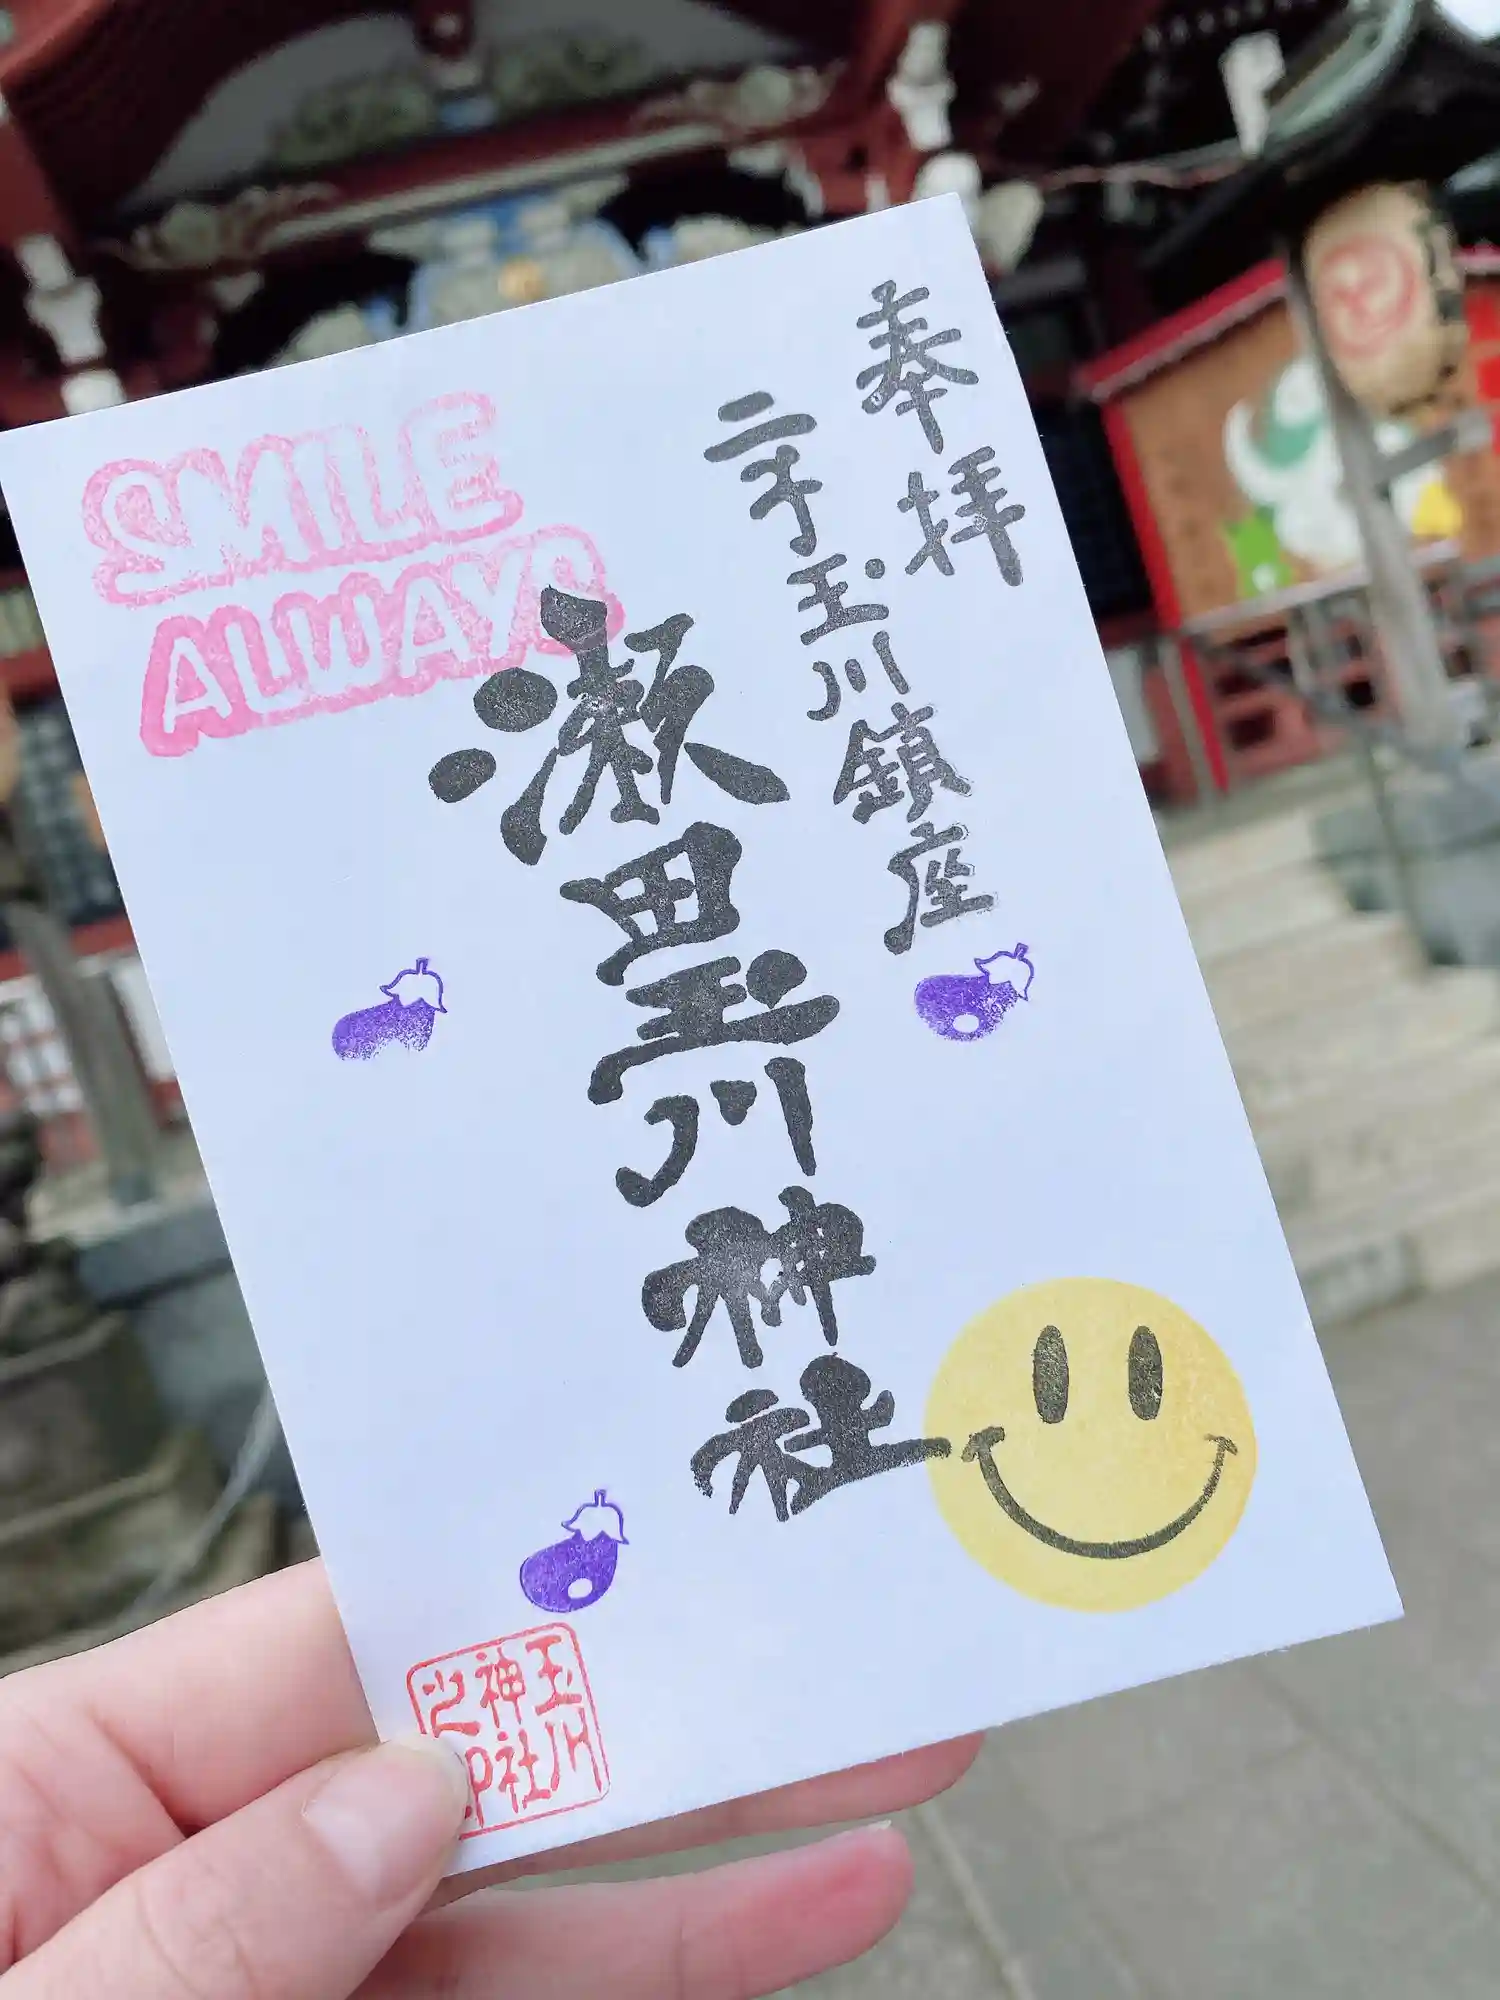 奉拝
二子玉川鎮座
瀬田玉川神社
SMILE
ALWAYS
玉川
神社
之印